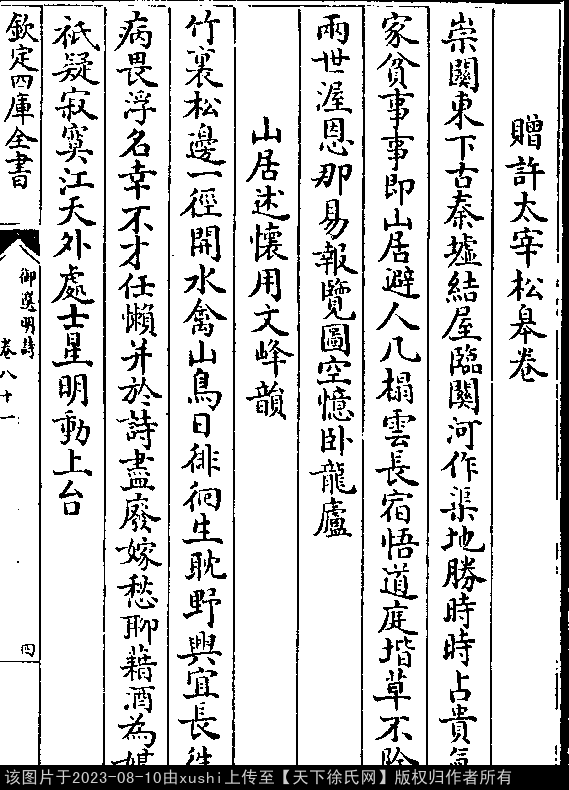 贈許太宰松皋卷
崇關東下古秦墟結屋臨關河作渠地勝時時占貴氣
家貧事事即山居避人几榻雲長宿悟道庭堦草不除
兩世渥恩那易報覽圖空憶卧龍廬
山居述懷用文峰韻
竹裏松邊一徑開水禽山鳥日徘徊生耽野興宜長往
病畏浮名幸不才任懶并於詩盡廢嫁愁聊藉酒為媒
祇疑寂寞江天外處士星明動上台
欽定四庫全書
御選明詩
卷八十一
四
该图片于2023-08-10由xushi上传至【天下徐氏网】版权归作者所有